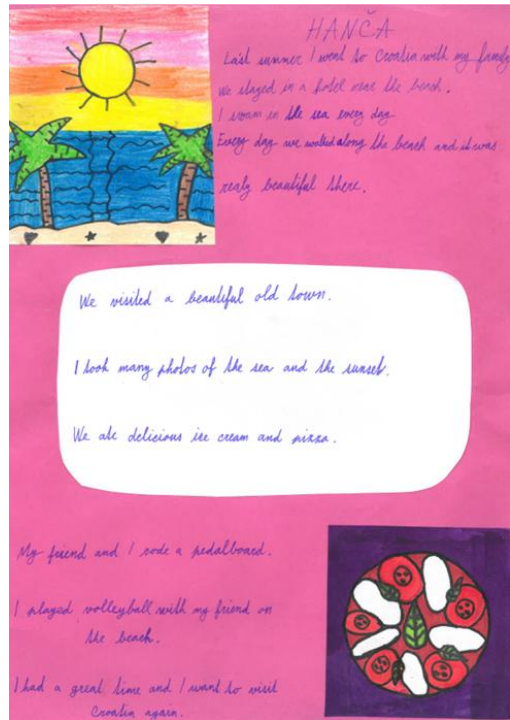 HANČA
Last summer I went to Croatia with my family
We stayed in a hotel near the beach.
I swam in the sea every day
Every day we walked along the beach and it was
realy beautiful there.
We visited a beautiful old town.
I took many photos of the sea and the sunset.
We ate delicious ice cream and pizza.
My friend and I rode a pedalboard.
I played volleyball with my friend on
the beach.
I had a great time and I want to visit
Croatia again.